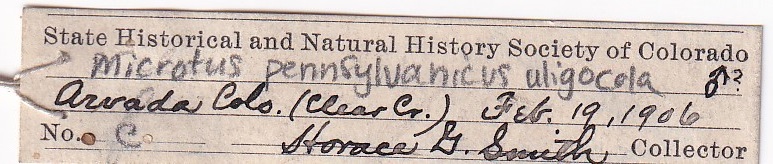 State Historical and Natural History Society of Colorado
Microtus pennsylvanicus uligocola ♂?
Arvada Colo. (Clear Cr.) Feb. 19, 1906
No. C Horace G. Smith Collector